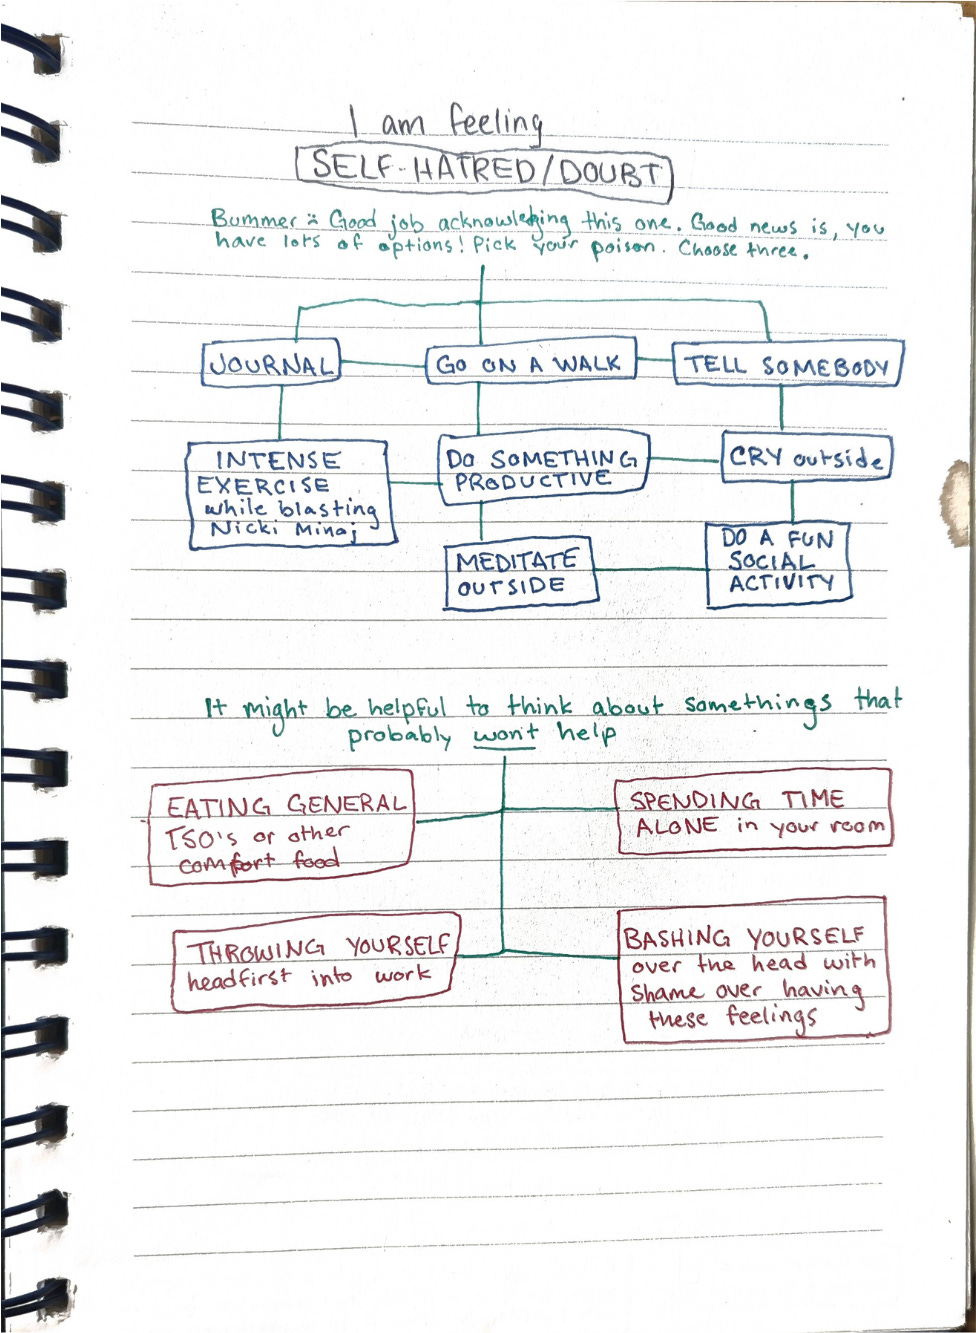 I am feeling
SELF-HATRED/DOUBT
Bummer :( Good job acknowledging this one. Good news is, you
have lots of options! Pick your poison. Choose three.
JOURNAL
GO ON A WALK
TELL SOMEBODY
INTENSE
EXERCISE
while blasting
Nicki Minaj
DO SOMETHING
PRODUCTIVE
CRY outside
MEDITATE
OUTSIDE
DO A FUN
SOCIAL
ACTIVITY
It might be helpful to think about somethings that
probably won't help
EATING GENERAL
TSO's or other
comfort food
SPENDING TIME
ALONE in your room
THROWING YOURSELF
headfirst into work
BASHING YOURSELF
over the head with
shame over having
these feelings